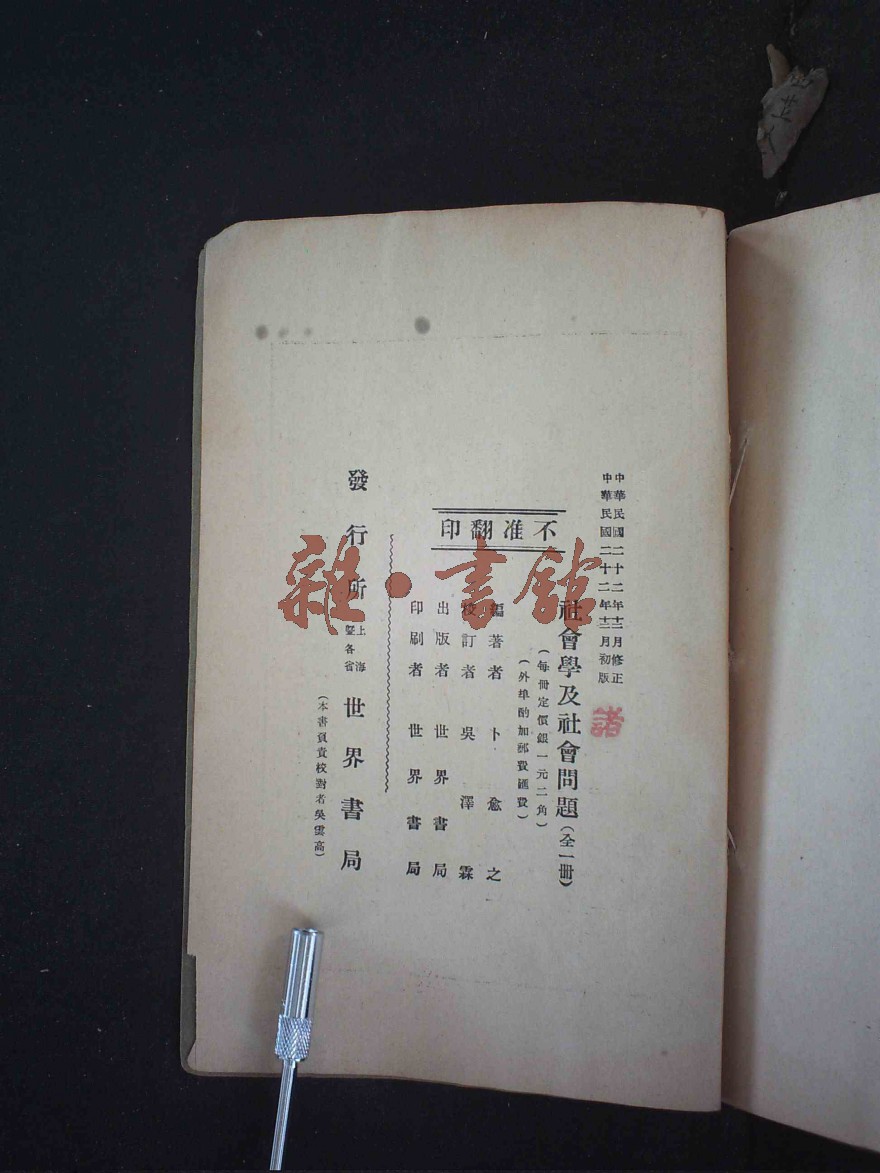 中華民國二十二年十二月修正
中華民國二十二年十二月初版
諸
不准翻印
社會學及社會問題(全一冊)
(每冊定價銀一元二角)
(外埠酌加郵費匯費)
編著者 卜愈之
校訂者 吳澤霖
出版者 世界書局
印刷者 世界書局
發行所 上海暨各省 世界書局
(本書負責校對者吳雲高)
雜·書館